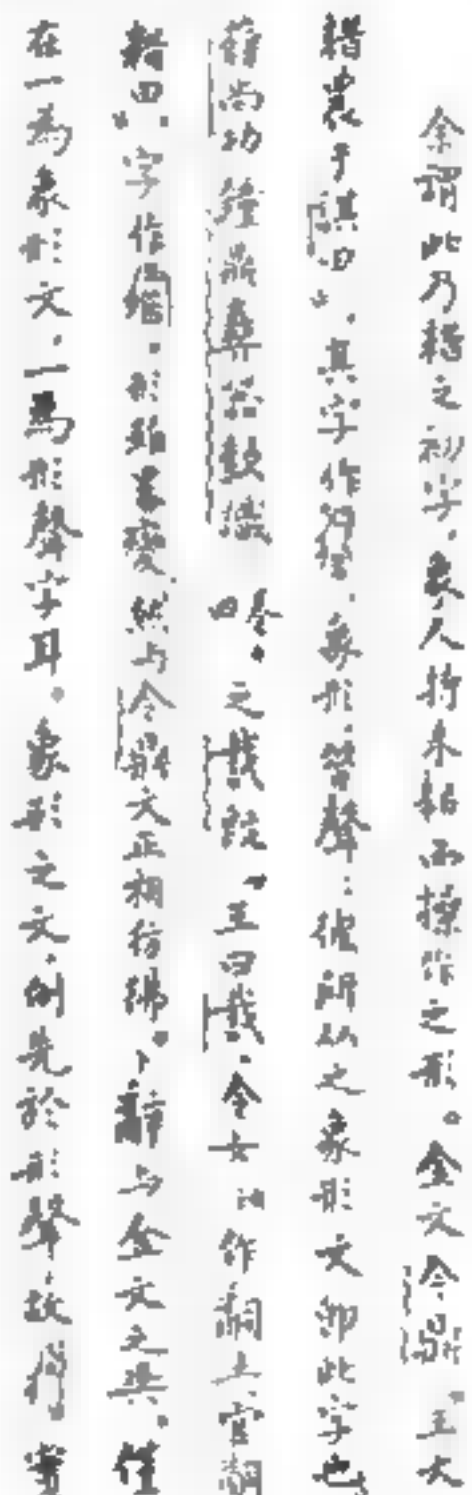 余謂此乃耤之初字，象人持耒耜而操作之形。金文令鼎「王大
耤農于諆田」，其字作，象形，䇎聲；彼所从之象形文即此字也
薛尚功鐘鼎彝器款識 卷 四。之𢦏𣪘「王曰𢦏，令女 作𤔲土，官𤔲
耤田」，字作，形雖畧變，然与令鼎文正相彷彿。卜辭与金文之異，僅
在一為象形文，一為形聲字耳。象形之文，例先於形聲，故